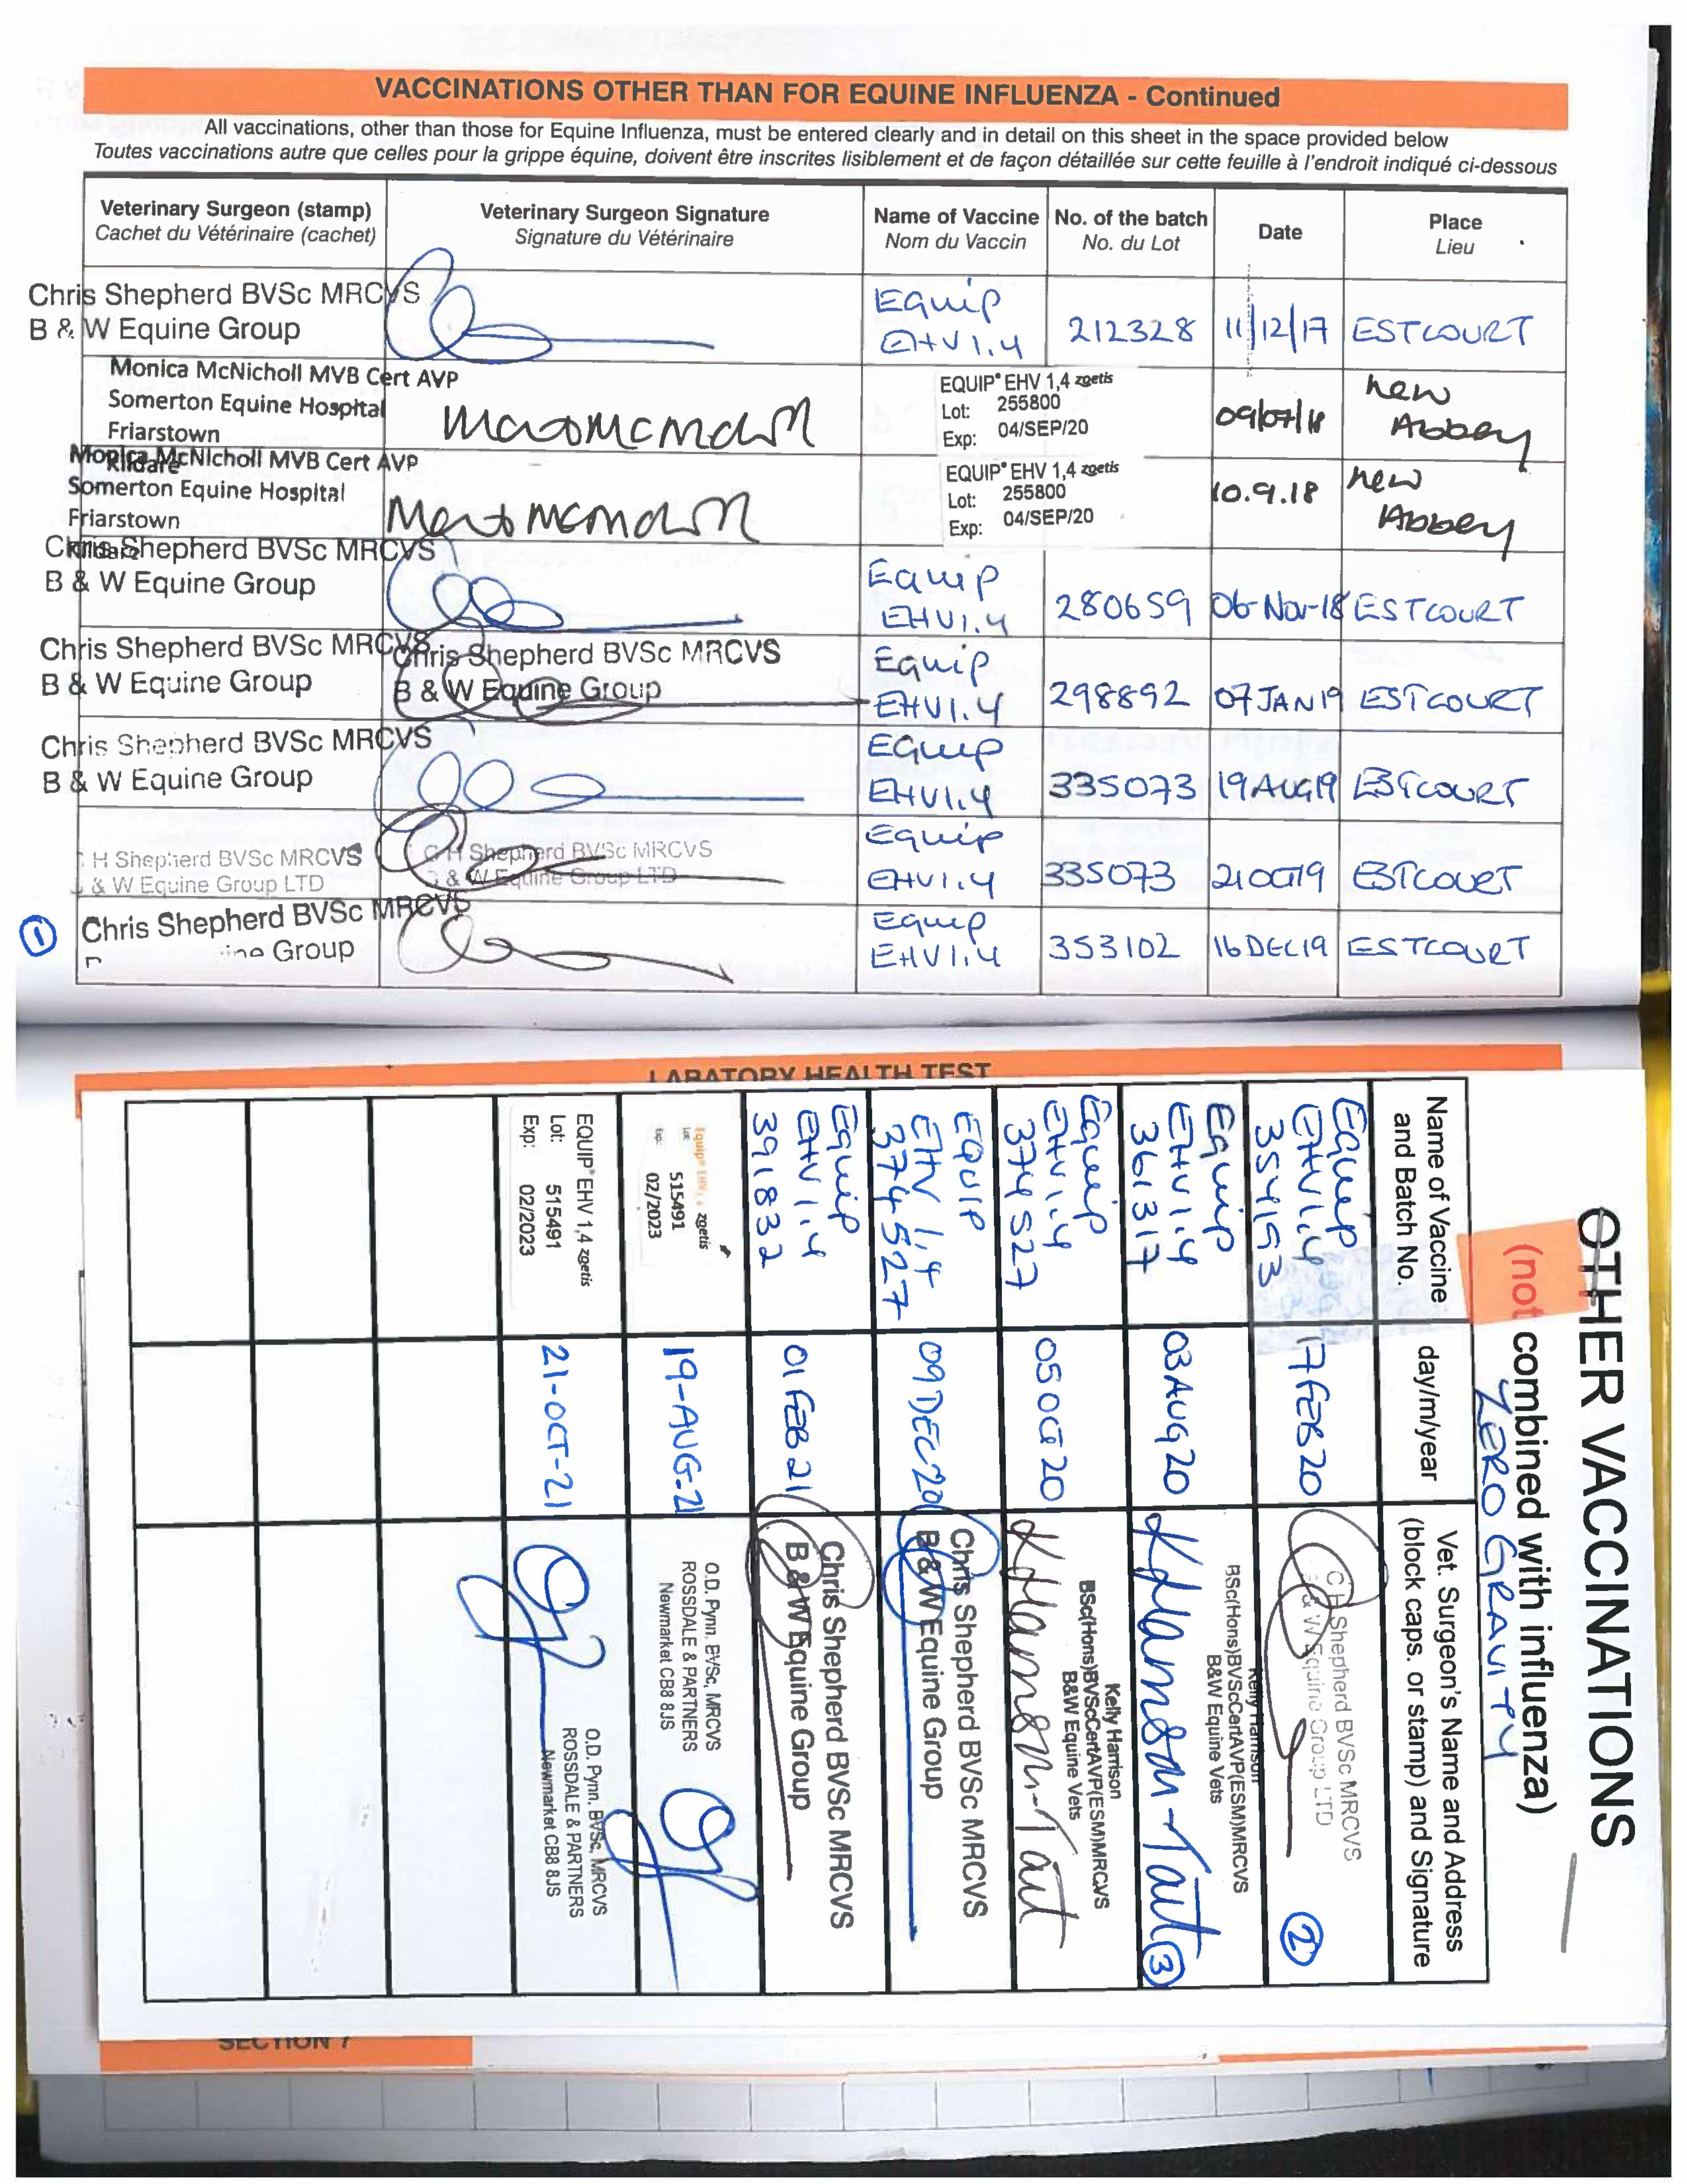 VACCINATIONS OTHER THAN FOR EQUINE INFLUENZA - Continued
All vaccinations, other than those for Equine Influenza, must be entered clearly and in detail on this sheet in the space provided below
Toutes vaccinations autre que celles pour la grippe équine, doivent être inscrites lisiblement et de façon détaillée sur cette feuille à l'endroit indiqué ci-dessous
Veterinary Surgeon (stamp) Veterinary Surgeon Signature Name of Vaccine No. of the batch Date Place
Cachet du Vétérinaire (cachet) Signature du Vétérinaire Nom du Vaccin No. du Lot Lieu
Chris Shepherd BVSc MRCVS Equip
B & W Equine Group EHV1.4 212328 11/12/17 ESTCOURT
Monica McNicholl MVB Cert AVP EQUIP EHV 1,4 zoetis new
Somerton Equine Hospital Lot: 255800 09/07/18 Abbey
Friarstown Exp: 04/SEP/20
Kildare
Monica McNicholl MVB Cert AVP EQUIP EHV 1,4 zoetis new
Somerton Equine Hospital Lot: 255800 10.9.18 Abbey
Friarstown Exp: 04/SEP/20
Kildare
Chris Shepherd BVSc MRCVS Equip
B & W Equine Group EHV1.4 280659 06-Nov-18 ESTCOURT
Chris Shepherd BVSc MRCVS Chris Shepherd BVSc MRCVS Equip
B & W Equine Group B & W Equine Group EHV1.4 298892 07JAN19 ESTCOURT
Chris Shepherd BVSc MRCVS Equip
B & W Equine Group EHV1.4 335073 19AUG19 ESTCOURT
H Shepherd BVSc MRCVS C H Shepherd BVSc MRCVS Equip
& W Equine Group LTD & W Equine Group LTD EHV1.4 335073 21OCT19 ESTCOURT
1 Chris Shepherd BVSc MRCVS Equip
Group EHV1.4 353102 16DEC19 ESTCOURT
LABATORY HEALTH TEST
OTHER VACCINATIONS
(not combined with influenza)
ZERO GRAVITY
Name of Vaccine and Batch No. day/m/year Vet. Surgeon's Name and Address
(block caps. or stamp) and Signature
Equip EHV1.4 354153 17FEB20 C H Shepherd BVSc MRCVS
& W Equine Group LTD 2
Equip EHV1.4 361317 03AUG20 Kelly Harrison
BSc(Hons)BVScCertAVP(ESM)MRCVS
B&W Equine Vets
KHarrison-Tait 3
Equip EHV1.4 374527 05OCT20 Kelly Harrison
BSc(Hons)BVScCertAVP(ESM)MRCVS
B&W Equine Vets
KHarrison-Tait
EQUIP EHV 1,4 374527 09DEC20 Chris Shepherd BVSc MRCVS
B & W Equine Group
Equip EHV1.4 391832 01FEB21 Chris Shepherd BVSc MRCVS
B & W Equine Group
Equip EHV 1,4 zoetis
Lot: 515491
Exp: 02/2023
19-AUG-21
O.D. Pynn. BVSc, MRCVS
ROSSDALE & PARTNERS
Newmarket CB8 8JS
EQUIP EHV 1,4 zoetis
Lot: 515491
Exp: 02/2023
21-OCT-21
O.D. Pynn. BVSc, MRCVS
ROSSDALE & PARTNERS
Newmarket CB8 8JS
SECTION 7